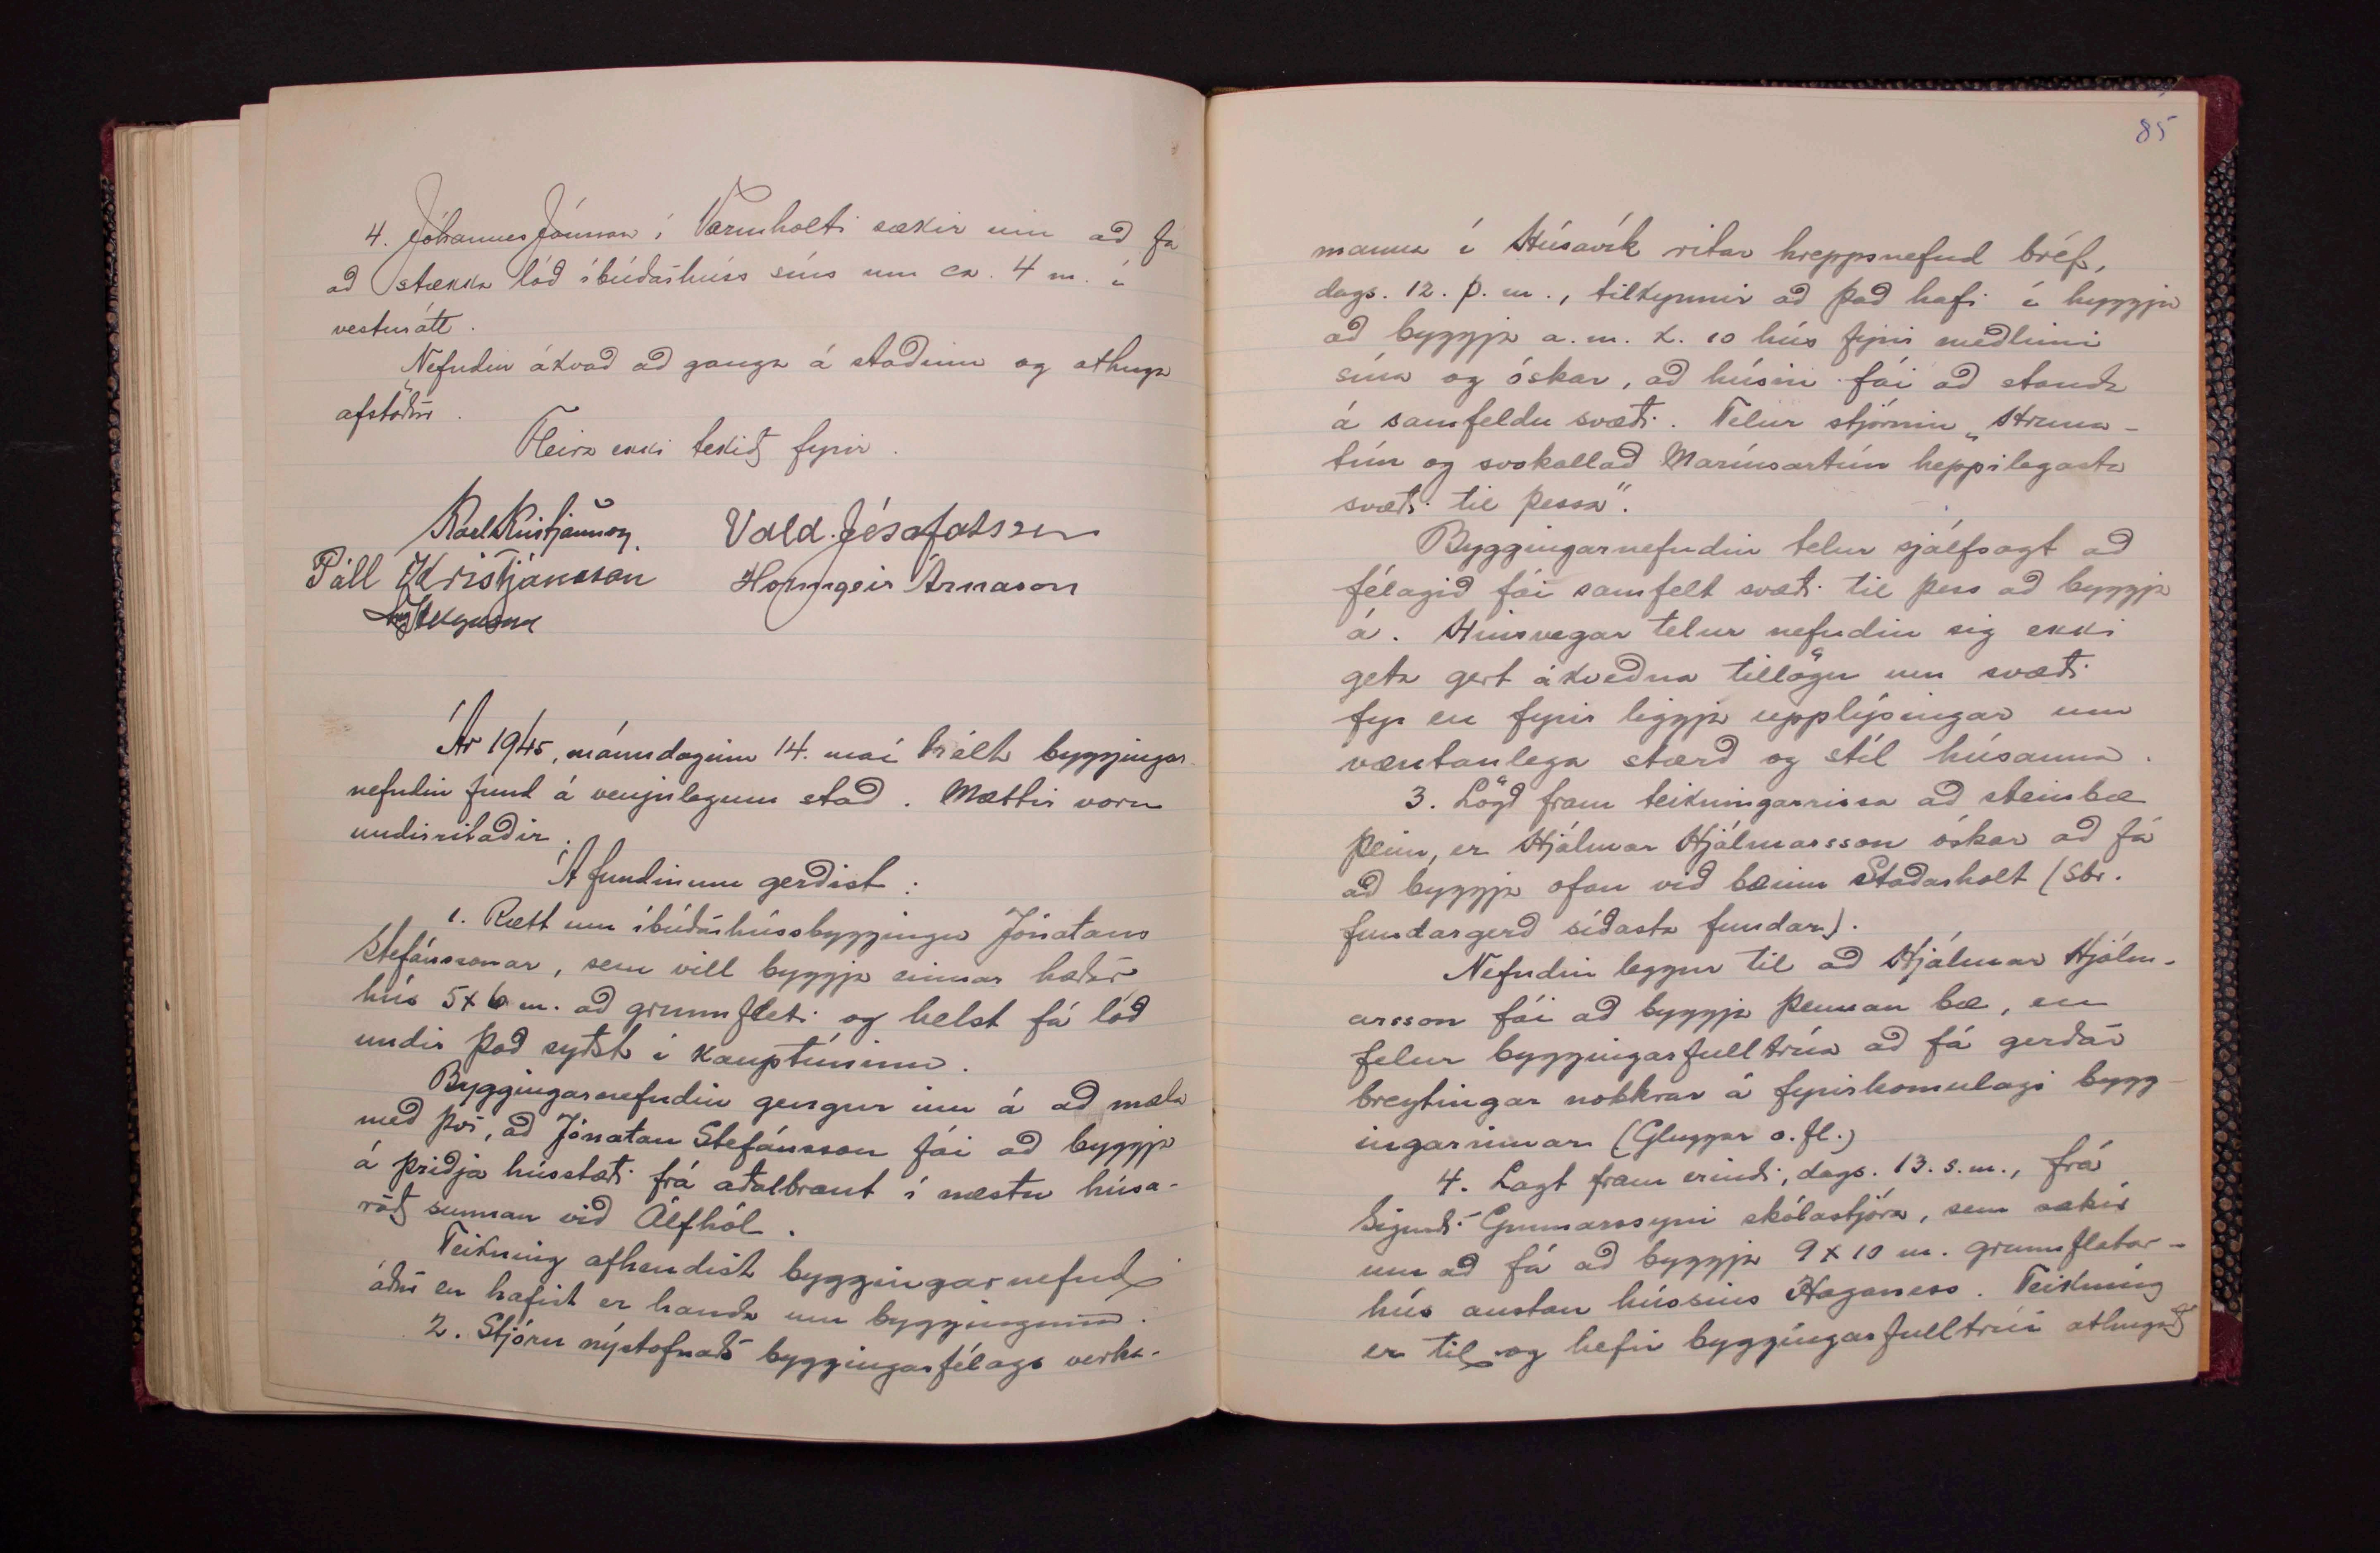 4. Jóhannes Jónsson í Varmholti sækir um að fá
að stækka lóð íbúðarhúss síns um ca. 4 m. í
vesturátt.
Nefndin ákvað að ganga á staðinn og athuga
afstöður.
Fleira ekki tekið fyrir.
Karl Kristjánsson Vald. Jósafatsson
Páll Kristjánsson Hólmgeir Árnason
Ár 1945, mánudaginn 14. maí hélt byggingar-
nefndin fund á venjulegum stað. Mættir voru
undirritaðir.
Á fundinum gerðist:
1. Rætt um íbúðarhússbyggingu Jónatans
Stefánssonar, sem vill byggja einnar hæðar
hús 5x6 m. að grunnfleti og helst fá lóð
undir það syðst í kauptúninu.
Byggingarnefndin gengur inn á að mæla
með því, að Jónatan Stefánsson fái að byggja
á þriðja hússtæði frá aðalbraut í næstu húsa-
röð sunnan við Álfhól.
Teikning afhendist byggingarnefnd
áður en hafist er handa um bygginguna.
2. Stjórn nýstofnaðs byggingarfélags verka-
85
manna í Húsavík ritar hreppsnefnd bréf,
dags. 12. þ. m., tilkynnir að það hafi í hyggju
að byggja a. m. k. 10 hús fyrir meðlimi
sína og óskar, að húsin fái að standa
á samfeldu svæði. Telur stjórnin „Hruna-
tún og svokallað Marínsartún heppilegasta
svæði til þessa".
Byggingarnefndin telur sjálfsagt að
félagið fái samfelt svæði til þess að byggja
á. Hinsvegar telur nefndin sig ekki
geta gert ákveðna tillögu um svæði
fyr en fyrir liggja upplýsingar um
væntanlega stærð og stíl húsanna.
3. Lögð fram teikningarrissa að steinbæ
þeim, er Hjálmar Hjálmarsson óskar að fá
að byggja ofan við bæinn Staðarholt (Sbr.
fundargerð síðasta fundar).
Nefndin leggur til að Hjálmar Hjálm-
arsson fái að byggja þennan bæ, en
felur byggingarfulltrúa að fá gerðar
breytingar nokkrar á fyrirkomulagi bygg-
ingarinnar (Gluggar o. fl.)
4. Lagt fram erindi, dags. 13. s. m., frá
Sigurði Gunnarssyni skólastjóra, sem sækir
um að fá að byggja 9 x 10 m. grunnflatar-
hús austan hússins Haganess. Teikning
er til og hefir byggingarfulltrúi athugað